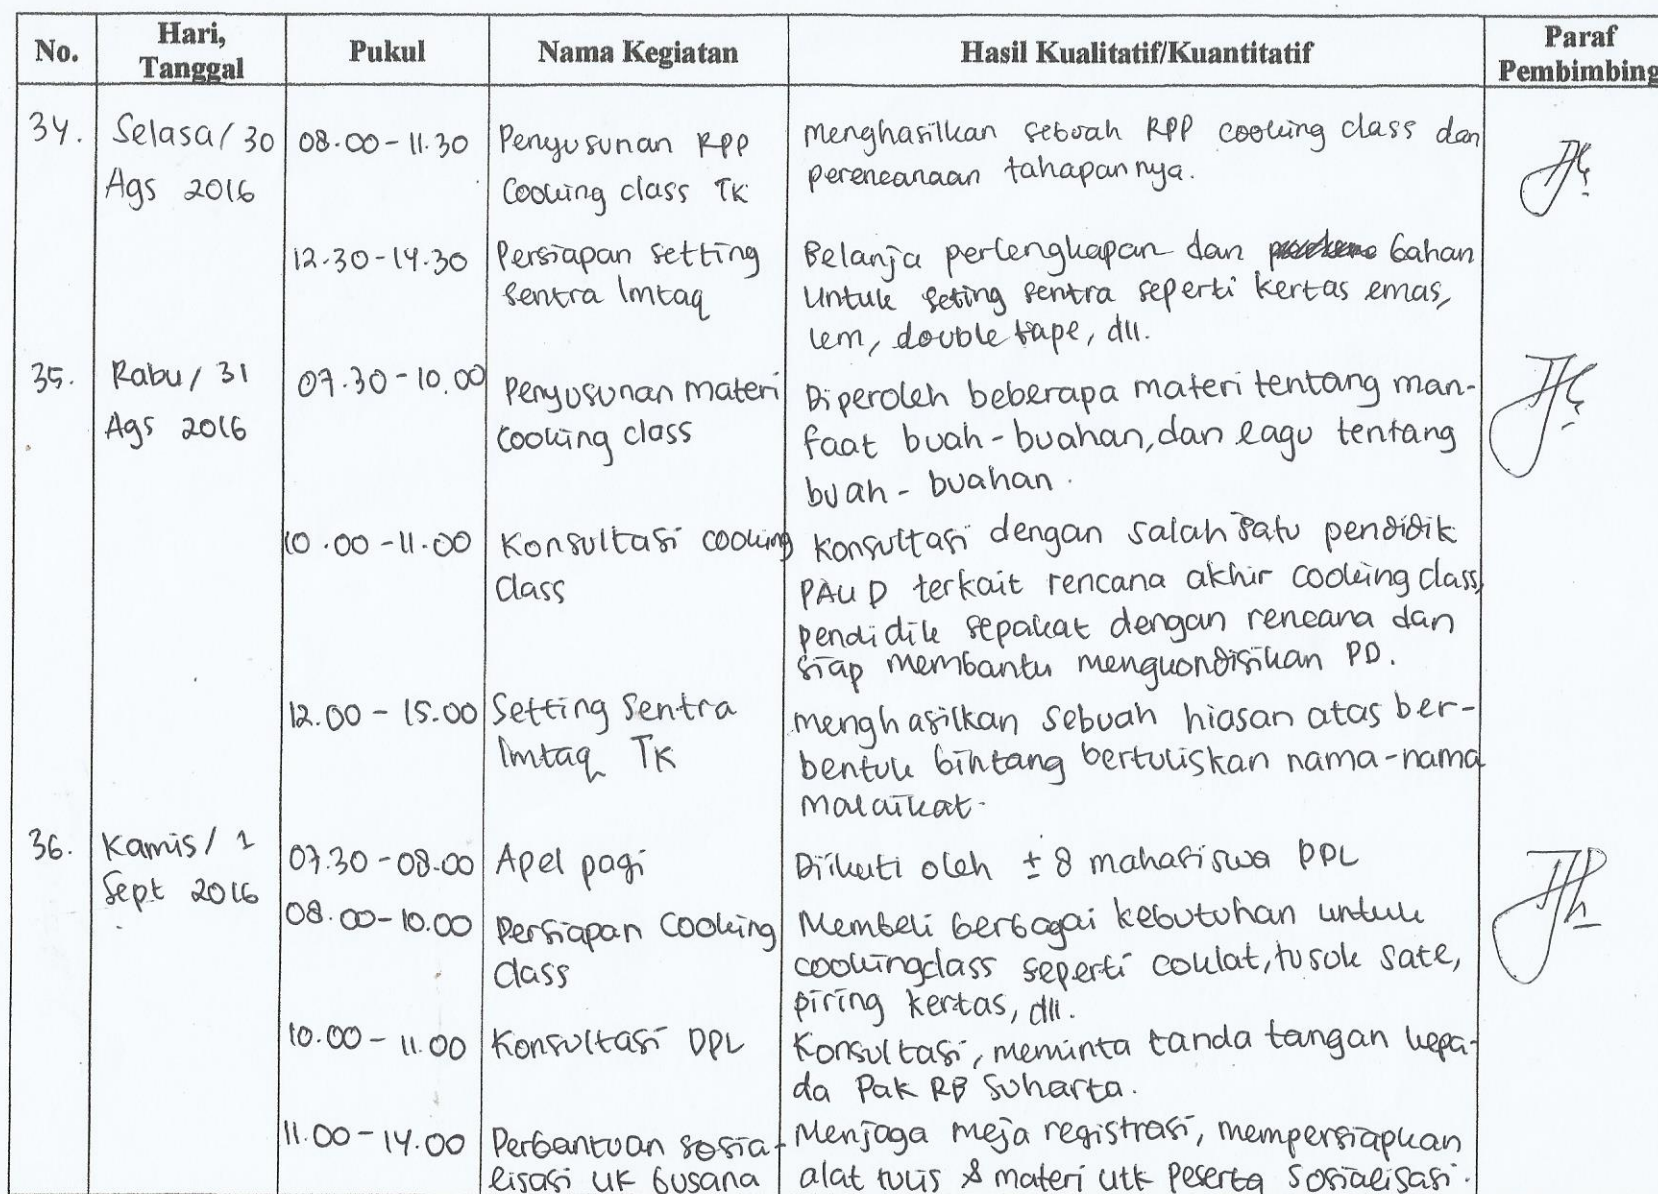 No. Hari, Tanggal Pukul Nama Kegiatan Hasil Kualitatif/Kuantitatif Paraf Pembimbing
34. Selasa/ 30 08.00 - 11.30 Penyusunan RPP menghasilkan sebuah RPP cooking class dan
Ags 2016 Cooking class TK perencanaan tahapannya.
12.30 - 14.30 Persiapan setting Belanja perlengkapan dan bahan
sentra Imtaq untuk seting sentra seperti kertas emas,
lem, double tape, dll.
35. Rabu/ 31 07.30 - 10.00 Penyusunan materi Diperoleh beberapa materi tentang man-
Ags 2016 Cooking class faat buah-buahan, dan lagu tentang
buah - buahan.
10.00 - 11.00 Konsultasi cooking Konsultasi dengan salah satu pendidik
class PAUD terkait rencana akhir cooking class,
pendidik sepakat dengan rencana dan
siap membantu mengkondisikan PD.
12.00 - 15.00 Setting Sentra menghasilkan sebuah hiasan atas ber-
Imtaq TK bentuk bintang bertuliskan nama-nama
malaikat.
36. Kamis/ 1 07.30 - 08.00 Apel pagi Diikuti oleh ± 8 mahasiswa PPL
Sept 2016 08.00 - 10.00 Persiapan Cooking Membeli berbagai kebutuhan untuk
class cookingclass seperti coklat, tusuk sate,
piring kertas, dll.
10.00 - 11.00 Konsultasi DPL Konsultasi, meminta tanda tangan kepa-
da Pak RB Suharta.
11.00 - 14.00 Perbantuan sosia- Menjaga meja registrasi, mempersiapkan
lisasi UK busana alat tulis & materi utk peserta sosialisasi.